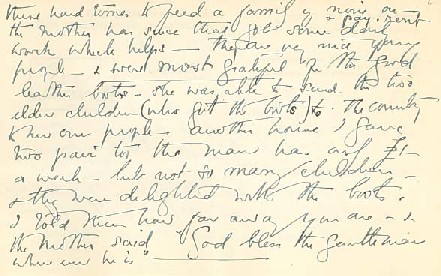 these hard times to feed a family of nine on & pay rent.
the mother has since that got some
work which helps - they are very nice young
people - & were most grateful for the good
leather boots - she was able to send the two
elder children (who got the boots) to the country
to her own people - another house I gave
two pair to, the man has only £1-
a week - but not so many children -
& they were delighted with the boots.
I told them how far away you are - &
the mother said "God bless the gentleman
wherever he is"